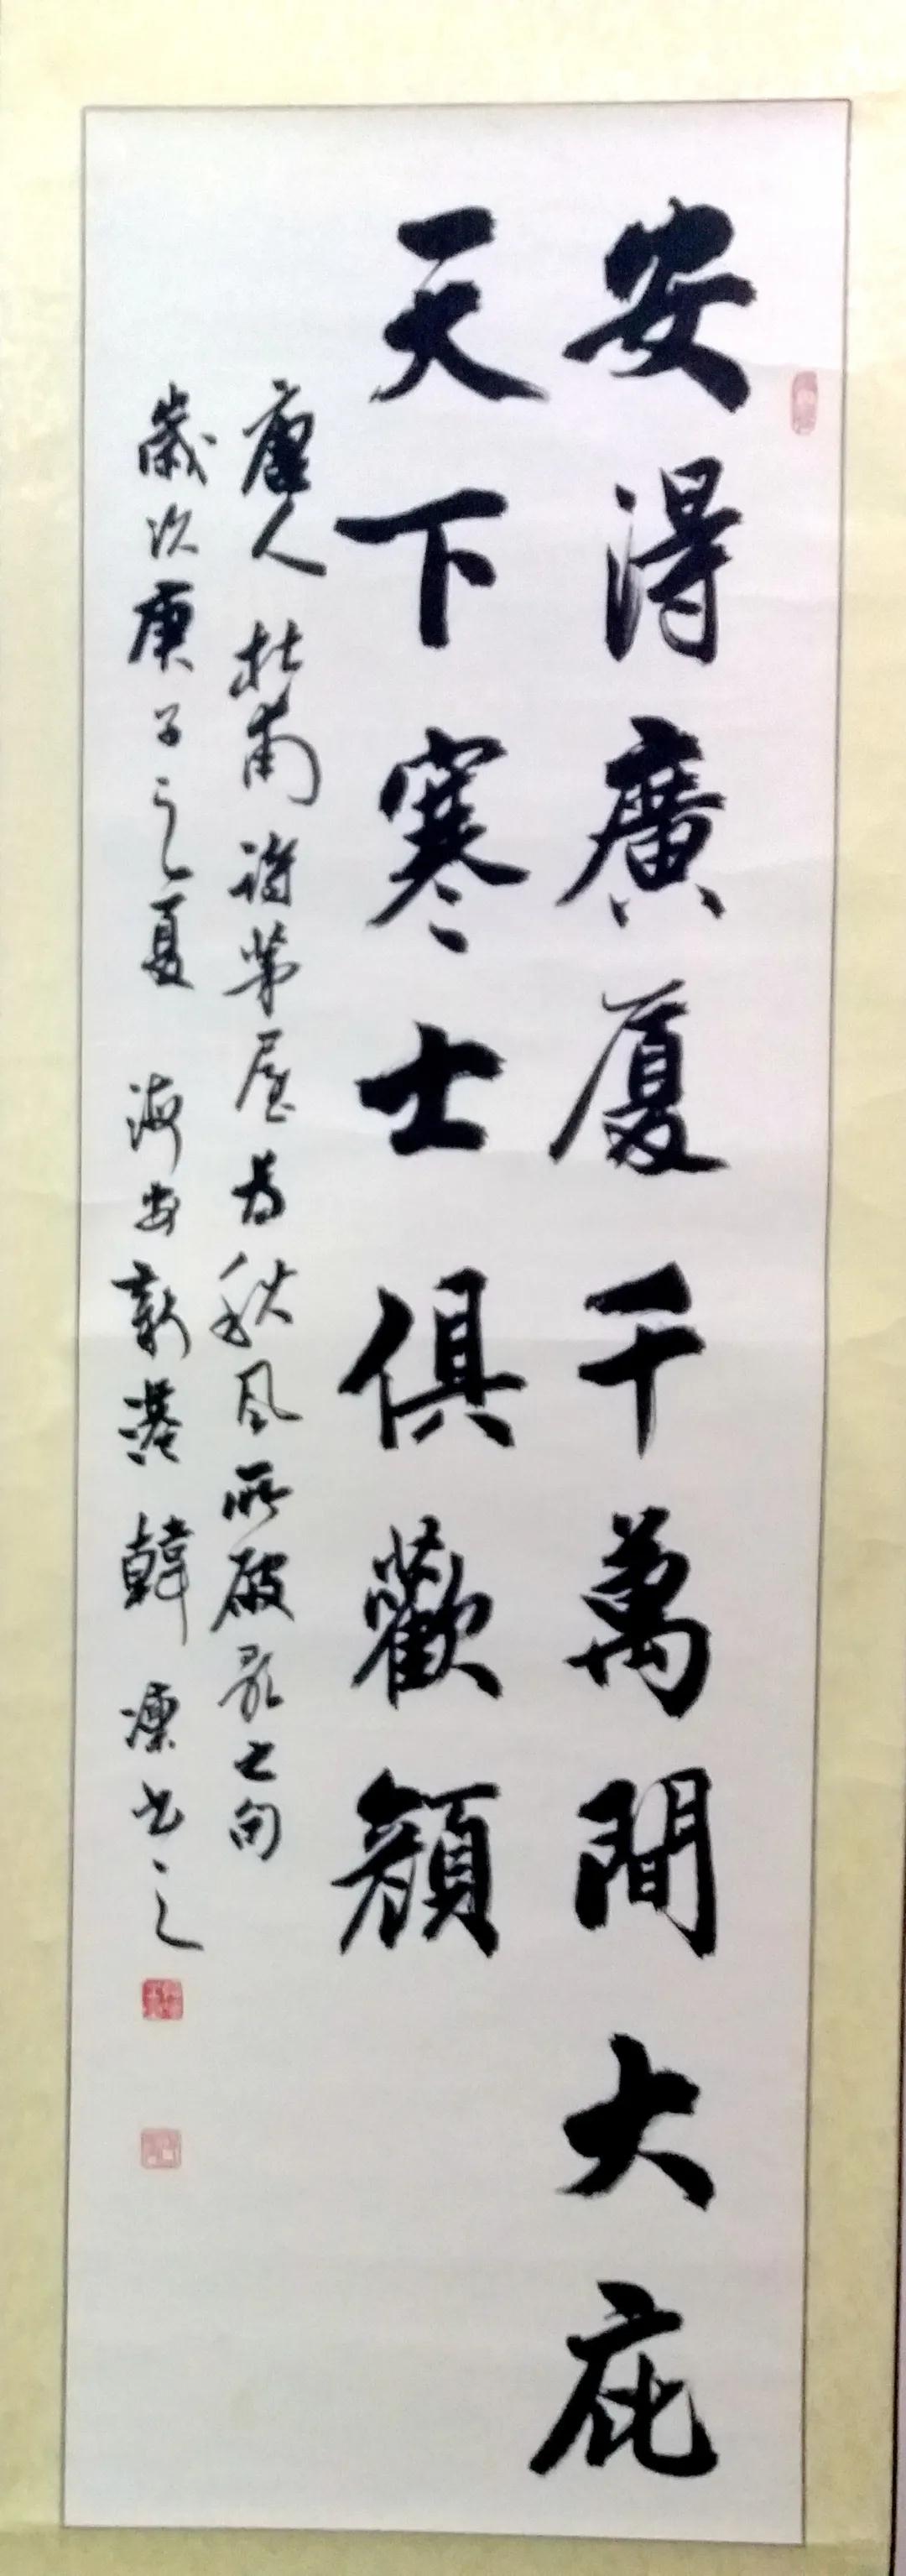 安得廣厦千萬間大庇
天下寒士俱歡顔
唐人杜甫詩茅屋為秋風所破歌之句
歲次庚子之夏 海安新港 韓 書之